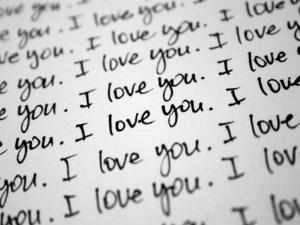 ove you. I love you.
you. I love you. I love
e you. I love you. I love you
e you. I love you. I love
e you. I love you. I love
e you. I love you. I love
you. I love you. I love
you. I love you. I lov
I lo